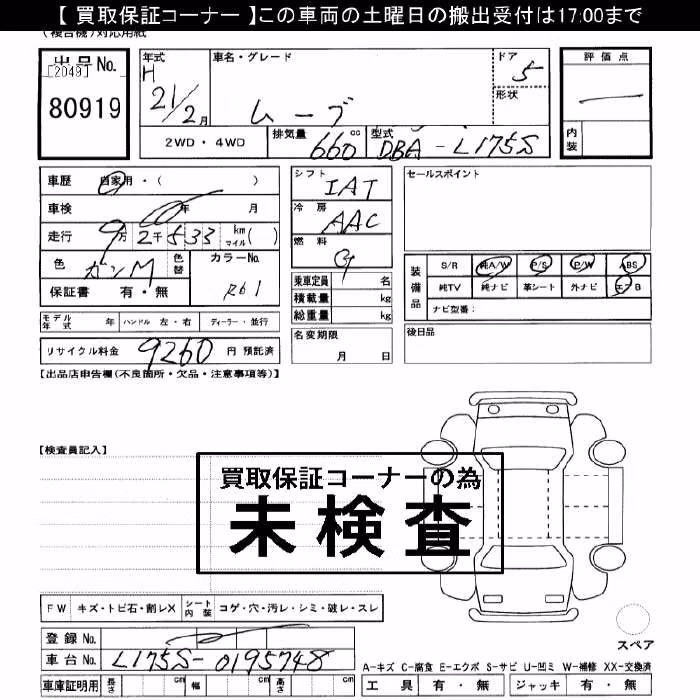 【 買取保証コーナー 】この車両の土曜日の搬出受付は17:00まで
(複合機)対応用紙
出品No.
[2049]
80919
年式
H
21/2月
車名・グレード
ムーブ
ドア
5
形状
評価点
内装
2WD・4WD
排気量
660cc
型式
DBA-L175S
車歴 自家用・( )
車検 年 月
走行 9万2千533 km マイル( )
色 ガンM
色替
カラーNo.
R61
保証書 有・無
シフト
IAT
冷房
AAC
燃料
G
乗車定員 名
積載量 kg
総重量 kg
セールスポイント
装備品
S/R 純A/W P/S P/W ABS
純TV 純ナビ 革シート 外ナビ エアB
ナビ型番:
モデル年式 年 ハンドル 左・右 ディーラー・並行
名変期限
月 日
後日品
リサイクル料金 9260 円 預託済
【出品店申告欄(不良箇所・欠品・注意事項等)】
【検査員記入】
買取保証コーナーの為
未検査
FW キズ・トビ石・割レX シート内装 コゲ・穴・汚レ・シミ・破レ・スレ
登録No.
車台No. L175S-0195748
スペア
A-キズ C-腐食 E-エクボ S-サビ U-凹ミ W-補修 XX-交換済
車庫証明用 長さ cm 幅 cm 高さ cm
工具 有・無 ジャッキ 有・無